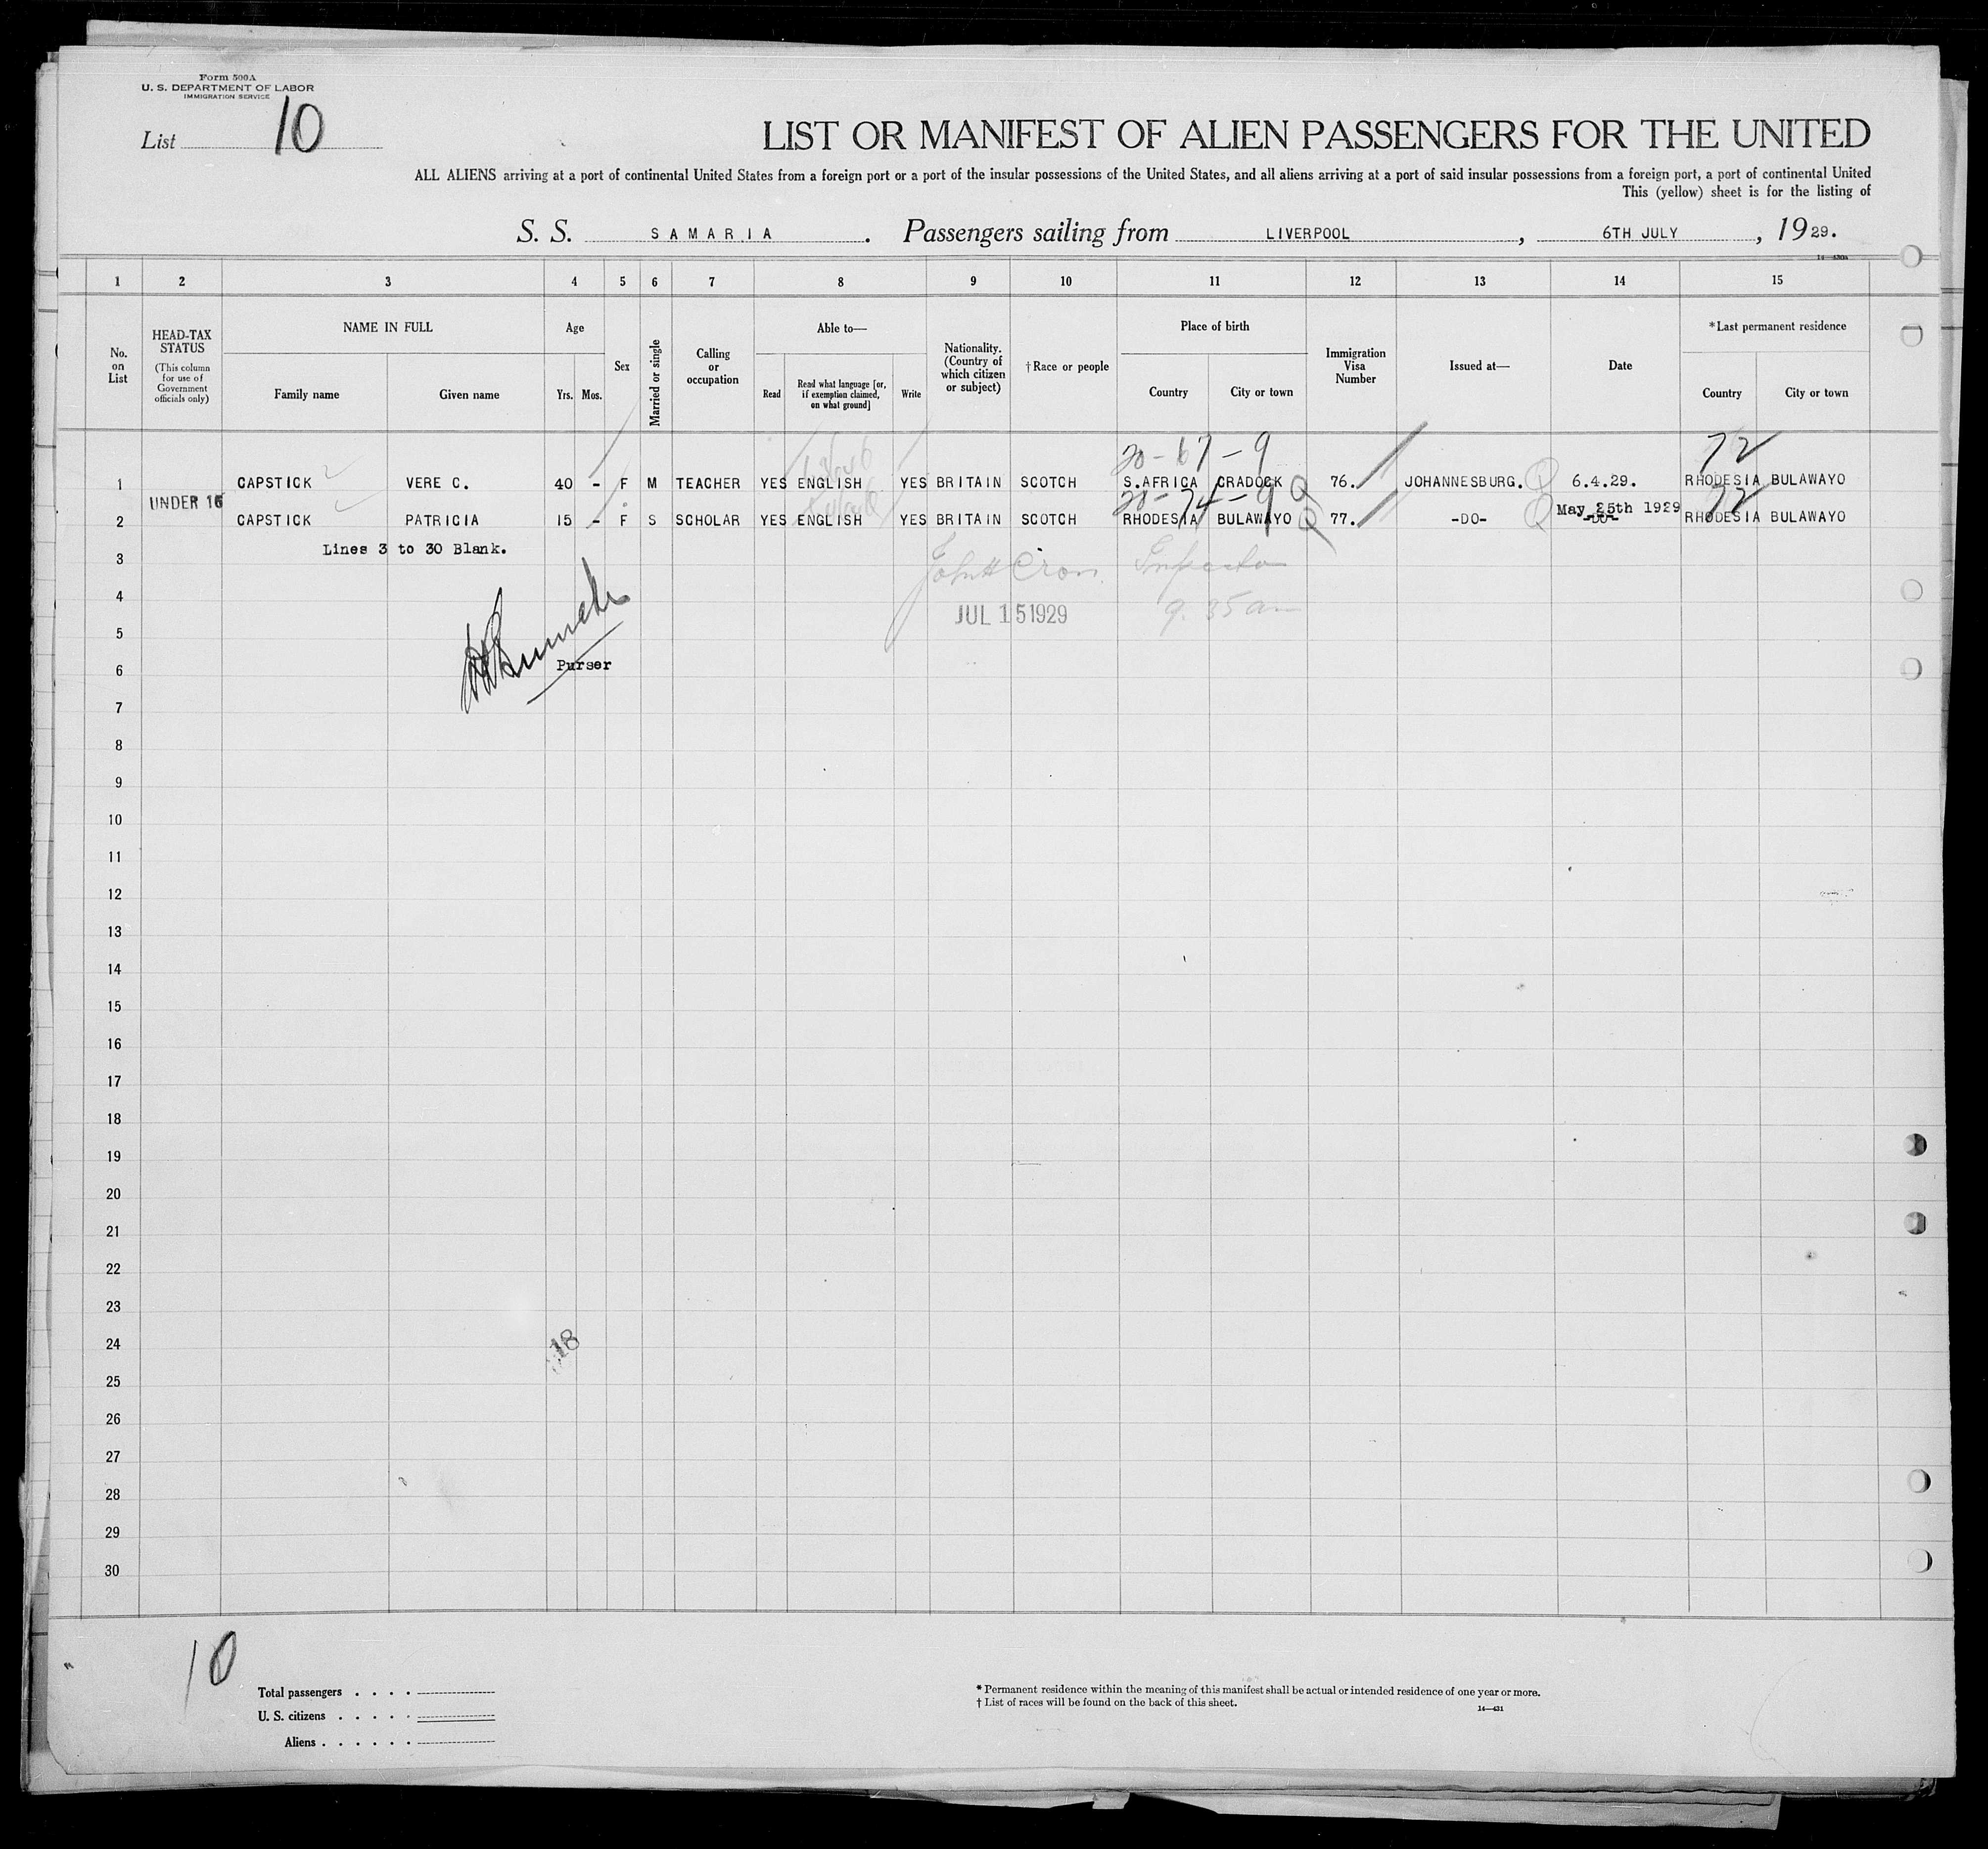 Form 500A
U. S. DEPARTMENT OF LABOR
IMMIGRATION SERVICE
List 10
LIST OR MANIFEST OF ALIEN PASSENGERS FOR THE UNITED
ALL ALIENS arriving at a port of continental United States from a foreign port or a port of the insular possessions of the United States, and all aliens arriving at a port of said insular possessions from a foreign port, a port of continental United
This (yellow) sheet is for the listing of
S. S. SAMARIA. Passengers sailing from LIVERPOOL, 6TH JULY, 1929.
1 2 3 4 5 6 7 8 9 10 11 12 13 14 15
No. on List
HEAD-TAX STATUS
(This column for use of Government officials only)
NAME IN FULL
Family name Given name
Age
Yrs. Mos.
Sex
Married or single
Calling or occupation
Able to—
Read
Read what language [or, if exemption claimed, on what ground]
Write
Nationality. (Country of which citizen or subject)
† Race or people
Place of birth
Country City or town
Immigration Visa Number
Issued at—
Date
*Last permanent residence
Country City or town
20-67-9 72
1 CAPSTICK VERE C. 40 - F M TEACHER YES ENGLISH YES BRITAIN SCOTCH S.AFRICA CRADOCK 76. JOHANNESBURG. 6.4.29. RHODESIA BULAWAYO
UNDER 16 20-74-9 May 25th 1929 72
2 CAPSTICK PATRICIA 15 - F S SCHOLAR YES ENGLISH YES BRITAIN SCOTCH RHODESIA BULAWAYO 77. -DO- -DO- RHODESIA BULAWAYO
Lines 3 to 30 Blank.
3
John H Cron Inspector
4
JUL 15 1929 9.35 am
5
6
Purser
7
8
9
10
11
12
13
14
15
16
17
18
19
20
21
22
23
24
18
25
26
27
28
29
30
10
Total passengers . . . .
U. S. citizens . . . . .
Aliens . . . . . .
* Permanent residence within the meaning of this manifest shall be actual or intended residence of one year or more.
† List of races will be found on the back of this sheet.
14—431